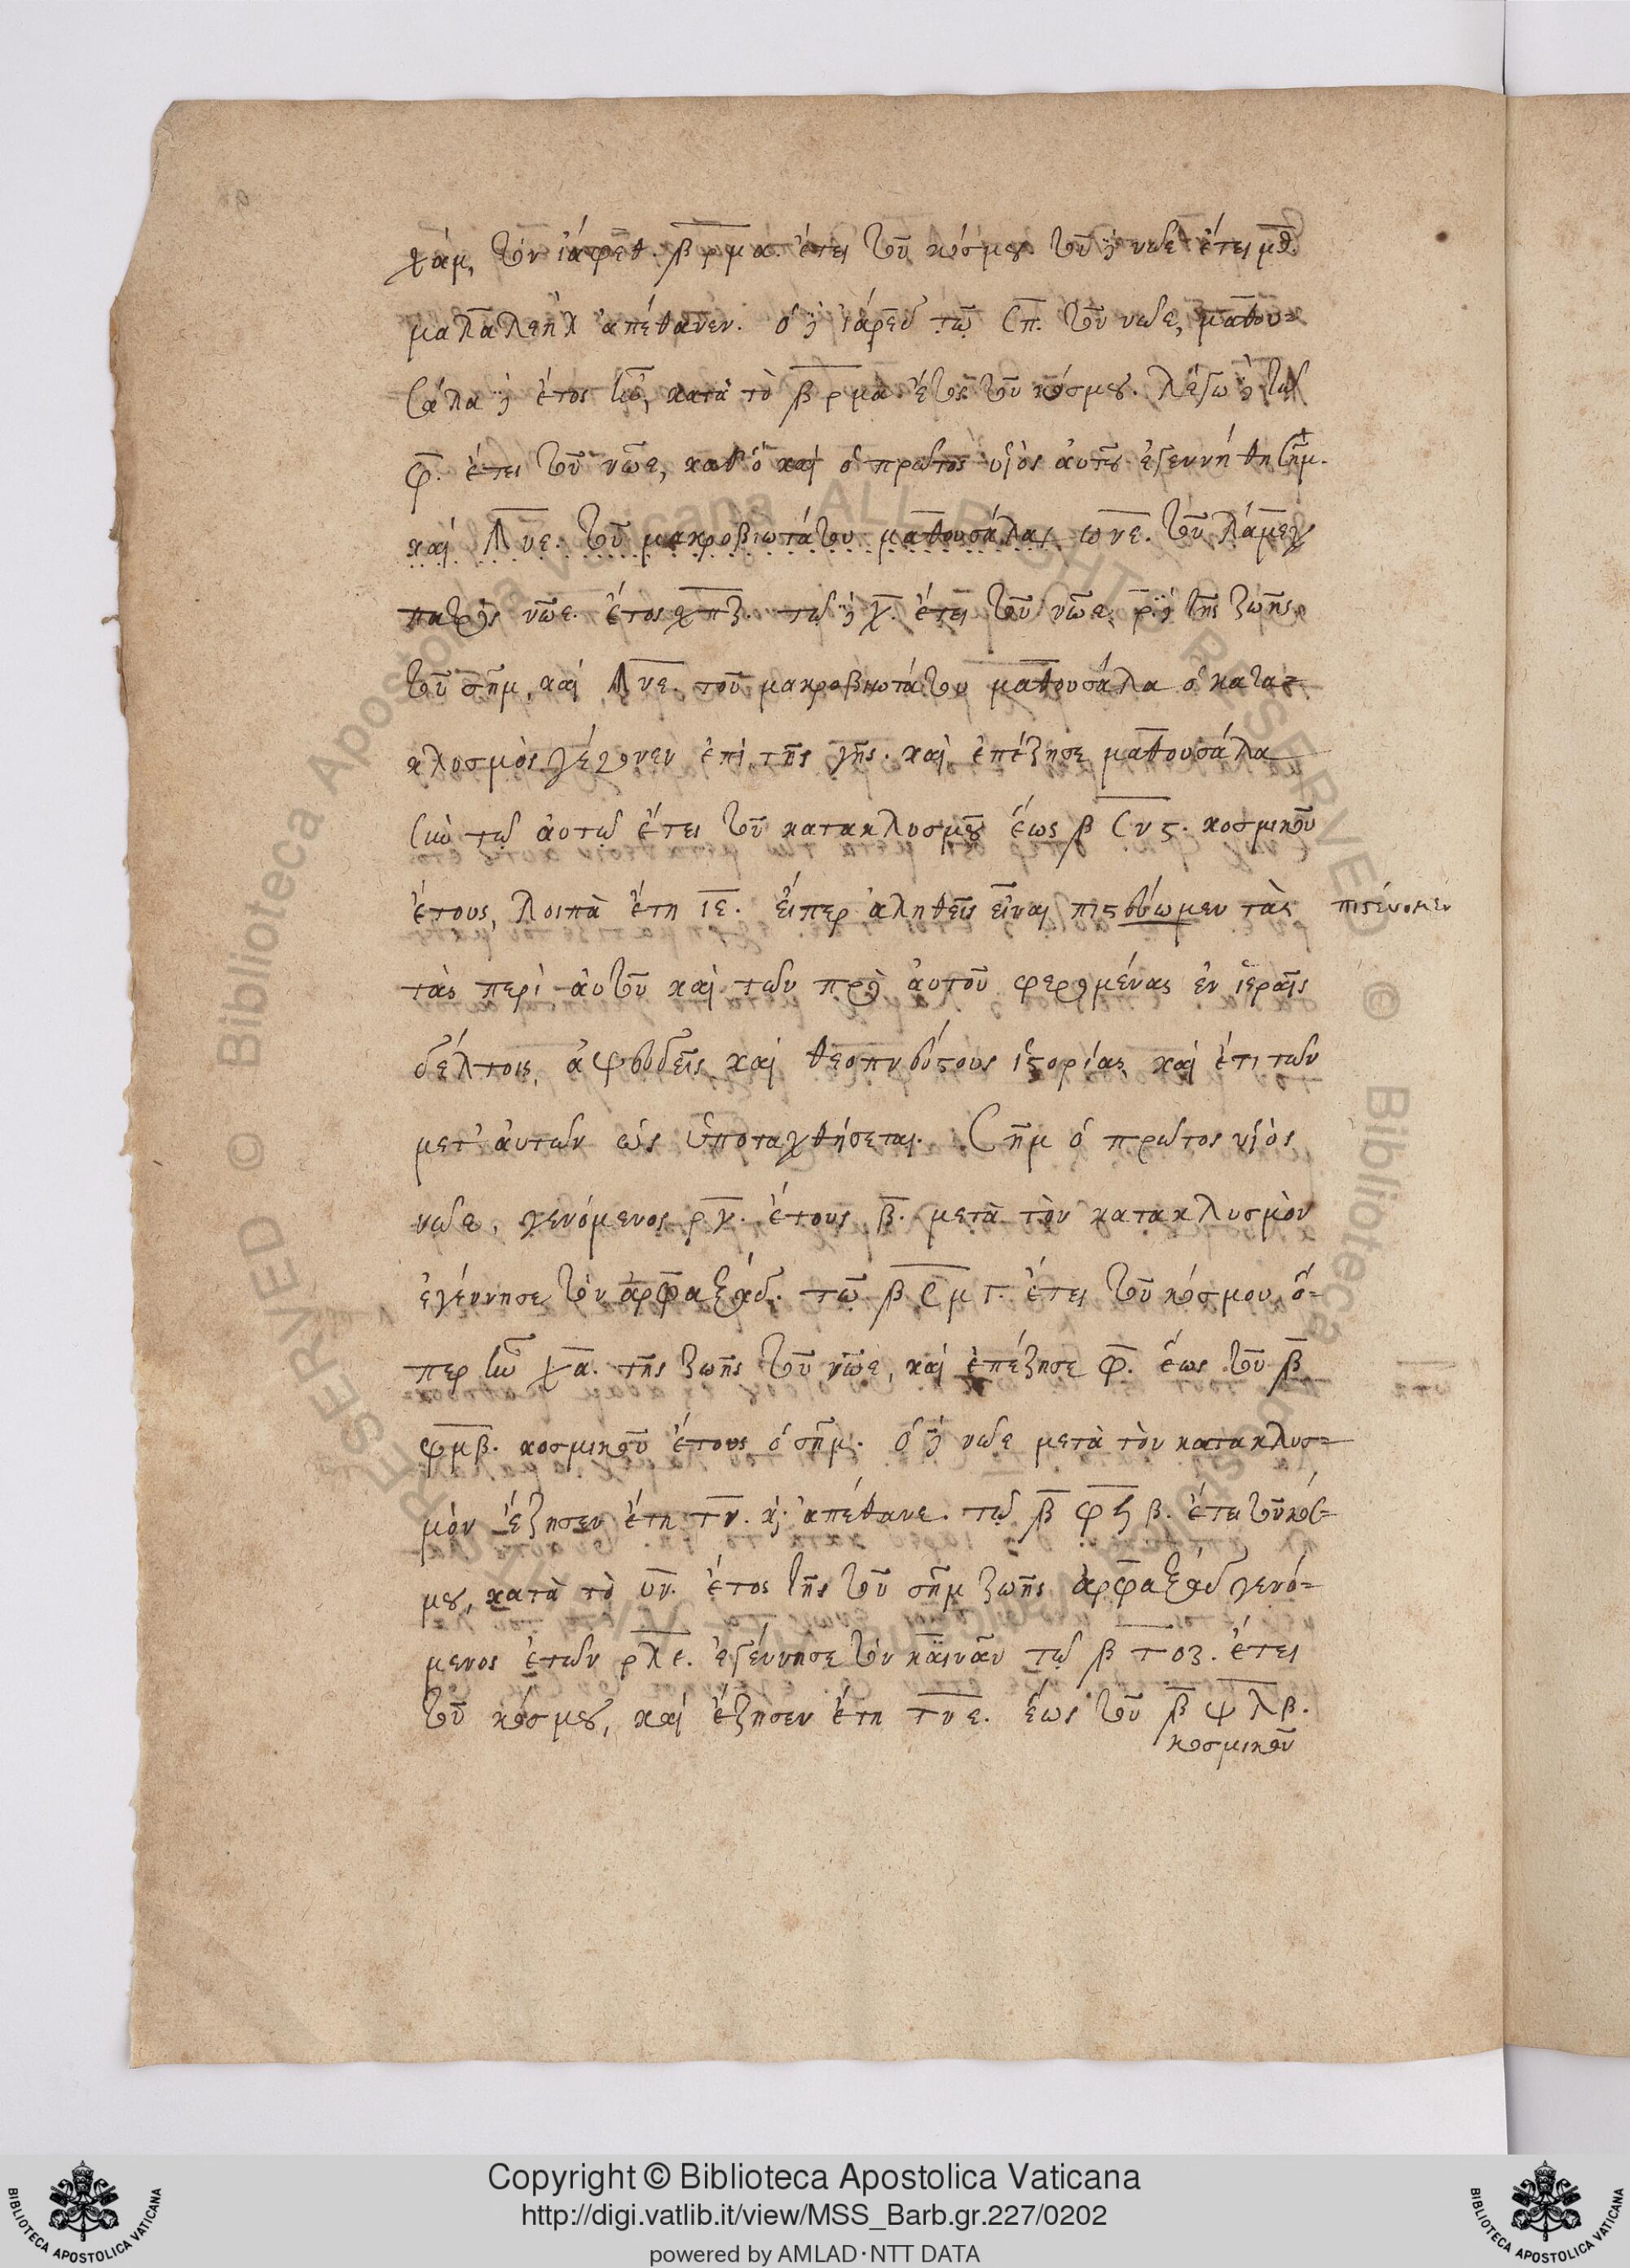 χάμ, τὸν ἰάφεθ. β ρμα. ἔτει τοῦ κόσμου τοῦ δὲ νῶε ἔτει
μαλαλεὴλ ἀπέθανεν. ὁ δὲ ἰάρεδ τῷ σπ. τοῦ νῶε, μαθου=
σάλα δὲ ἔτος κατὰ τὸ β ρμα ἔτος τοῦ κόσμου. λέγω δὲ τῷ
φ. ἔτει τοῦ νῶε, καθ' ὃ καὶ ὁ πρῶτος υἱὸς αὐτοῦ ἐγεννήθη σήμ.
καὶ ϡνε. τοῦ μακροβιωτάτου μαθουσάλας ωνε. τοῦ λάμεχ
πατρὸς νῶε. ἔτος χπζ. τῷ δὲ χ. ἔτει τοῦ νῶε, ρ. δὲ τῆς ζωῆς
τοῦ σῆμ, καὶ ϡνε. τοῦ μακροβιωτάτου μαθουσάλα ὁ κατα=
κλυσμὸς γέγονεν ἐπὶ τῆς γῆς. καὶ ἐπέζησε μαθουσάλα
σὺν τῷ αὐτῷ ἔτει τοῦ κατακλυσμοῦ ἕως β σνς. κοσμικοῦ
ἔτους, λοιπὰ ἔτη ιε. εἴπερ ἀληθεῖς εἶναι πιστεύωμεν τὰς πιστεύομεν
τὰς περὶ αὐτοῦ καὶ τῶν πρὸ αὐτοῦ φερομένας ἐν ἱεραῖς
δέλτοις, ἀψευδεῖς καὶ θεοπνεύστους ἱστορίας, καὶ ἔτι τῶν
μετ' αὐτῶν ὡς ὑποταχθήσεται. Σῆμ ὁ πρῶτος υἱὸς
νῶε, γενόμενος ρχ. ἔτους β. μετὰ τὸν κατακλυσμὸν
ἐγέννησε τὸν ἀρφαξάδ. τῷ β σμγ. ἔτει τοῦ κόσμου, ὅ=
περ ἦν χα. τῆς ζωῆς τοῦ νῶε, καὶ ἐπέζησε φ. ἕως τοῦ β
ψμβ. κοσμικοῦ ἔτους ὁ σῆμ. ὁ δὲ νῶε μετὰ τὸν κατακλυσ=
μὸν ἔζησεν ἔτη τν. καὶ ἀπέθανε. τῷ β φϟβ. ἔτει τοῦ κόσ=
μου, κατὰ τὸ υν. ἔτος τῆς τοῦ σῆμ ζωῆς ἀρφαξάδ γενό=
μενος ἐτῶν ρλε. ἐγέννησε τὸν καϊνᾶν τῷ β τοζ. ἔτει
τοῦ κόσμου, καὶ ἔζησεν ἔτη τνε. ἕως τοῦ β ψλβ.
κοσμικοῦ
Copyright © Biblioteca Apostolica Vaticana
http://digi.vatlib.it/view/MSS_Barb.gr.227/0202
powered by AMLAD·NTT DATA